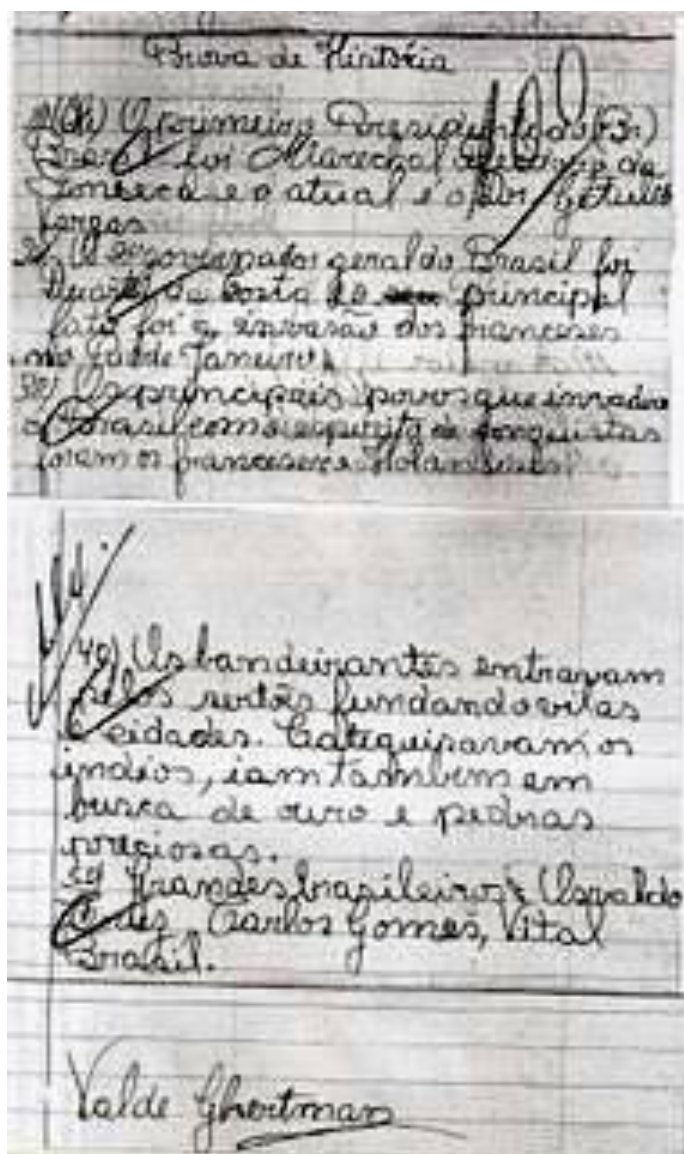 Prova de História
100
O primeiro Presidente do (Br)
Brasil foi Marechal Deodoro da
Fonseca e o atual é o Dor Getulio
Vargas
2o) O 2o governador geral do Brasil foi
Duarte da Costa e o principal
fato foi a invasão dos franceses
no Rio de Janeiro
3o) Os principais povos que invadiram
o Brasil com o espirito de conquistas
foram os franceses e Holandeses
4o) Os bandeirantes entravam
pelos sertões fundando vilas
e cidades. Catequisavam os
indios, iam tambem em
busca de ouro e pedras
preciosas.
5o) Grandes brasileiros: Osvaldo
Cruz, Carlos Gomes, Vital
Brasil.
Valde Ghertman